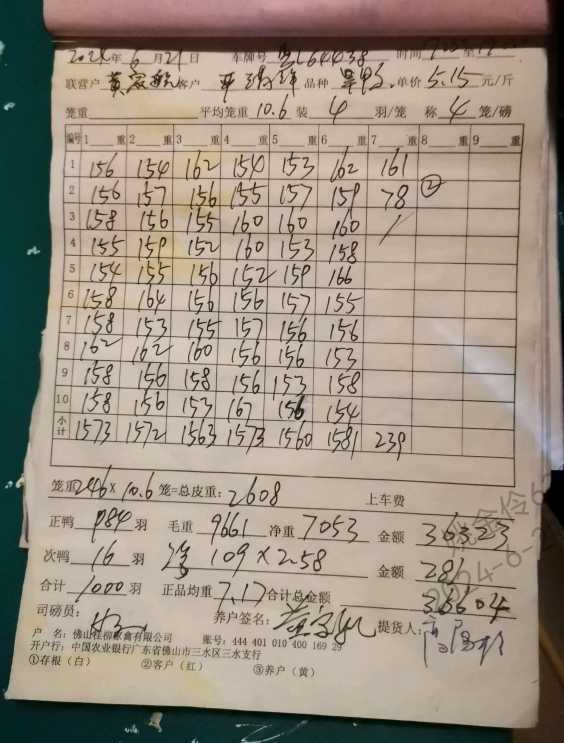 2024年6月21日 车牌号 时间 至
联营户 客户 品种 单价 5.15 元/斤
笼重 平均笼重 10.6 装 4 羽/笼 称 4 笼/磅
编号 1 重 2 重 3 重 4 重 5 重 6 重 7 重 8 重 9 重
1 156 154 162 154 153 162 161
2 156 157 156 155 157 159 78 ②
3 158 156 155 160 160 160
4 155 159 152 160 153 158
5 154 155 156 152 159 166
6 158 164 156 156 157 155
7 158 153 155 157 156 156
8 162 162 160 156 156 153
9 158 156 158 156 153 158
10 158 156 153 167 156 154
小计 1573 1572 1563 1573 1560 1581 239
笼重 246 × 10.6 笼=总皮重: 2608 上车费
正鸭 984 羽 毛重 9661 净重 7053 金额 36323
次鸭 16 羽 109 × 2.58 金额 281
合计 1000 羽 正品均重 7.17 合计总金额 36604
司磅员: 养户签名: 提货人:
户 名: 佛山 家禽有限公司 账号: 444 401 010 400 169 29
开户行: 中国农业银行广东省佛山市三水区三水支行
①存根(白) ②客户(红) ③养户(黄)